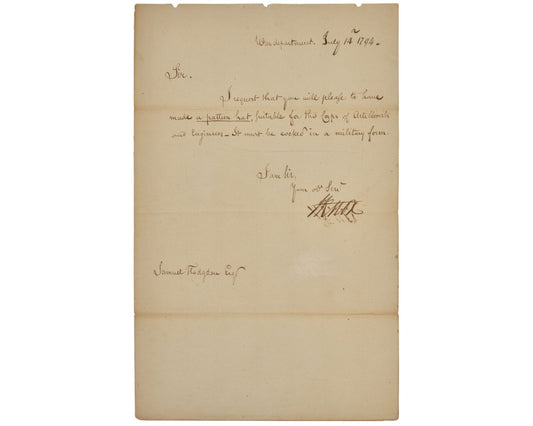 War department. July 14th 1794.
Sir.
I request that you will please to have
made a pattern hat, suitable for the Corps of Artillerists
and Engineers – It must be cocked in a military form.
I am Sir,
Your ob Serv
HKnox
Samuel Hodgdon Esqr